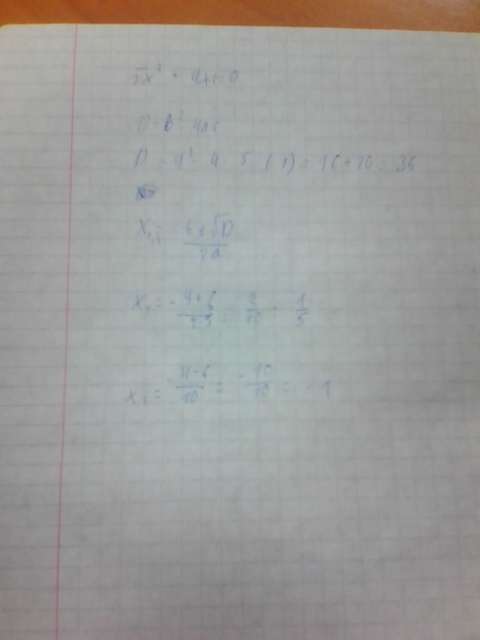 5x² + 4x-0
D=b² 4ac
D = 4² - 4 · 5 · (-1) = 16+20 = 36
x₁,₂ = -b±√D / 2a
x₁ = -4+6 / 2·5 = 2/10 = 1/5
x₂ = -4-6 / 10 = -10/10 = -1